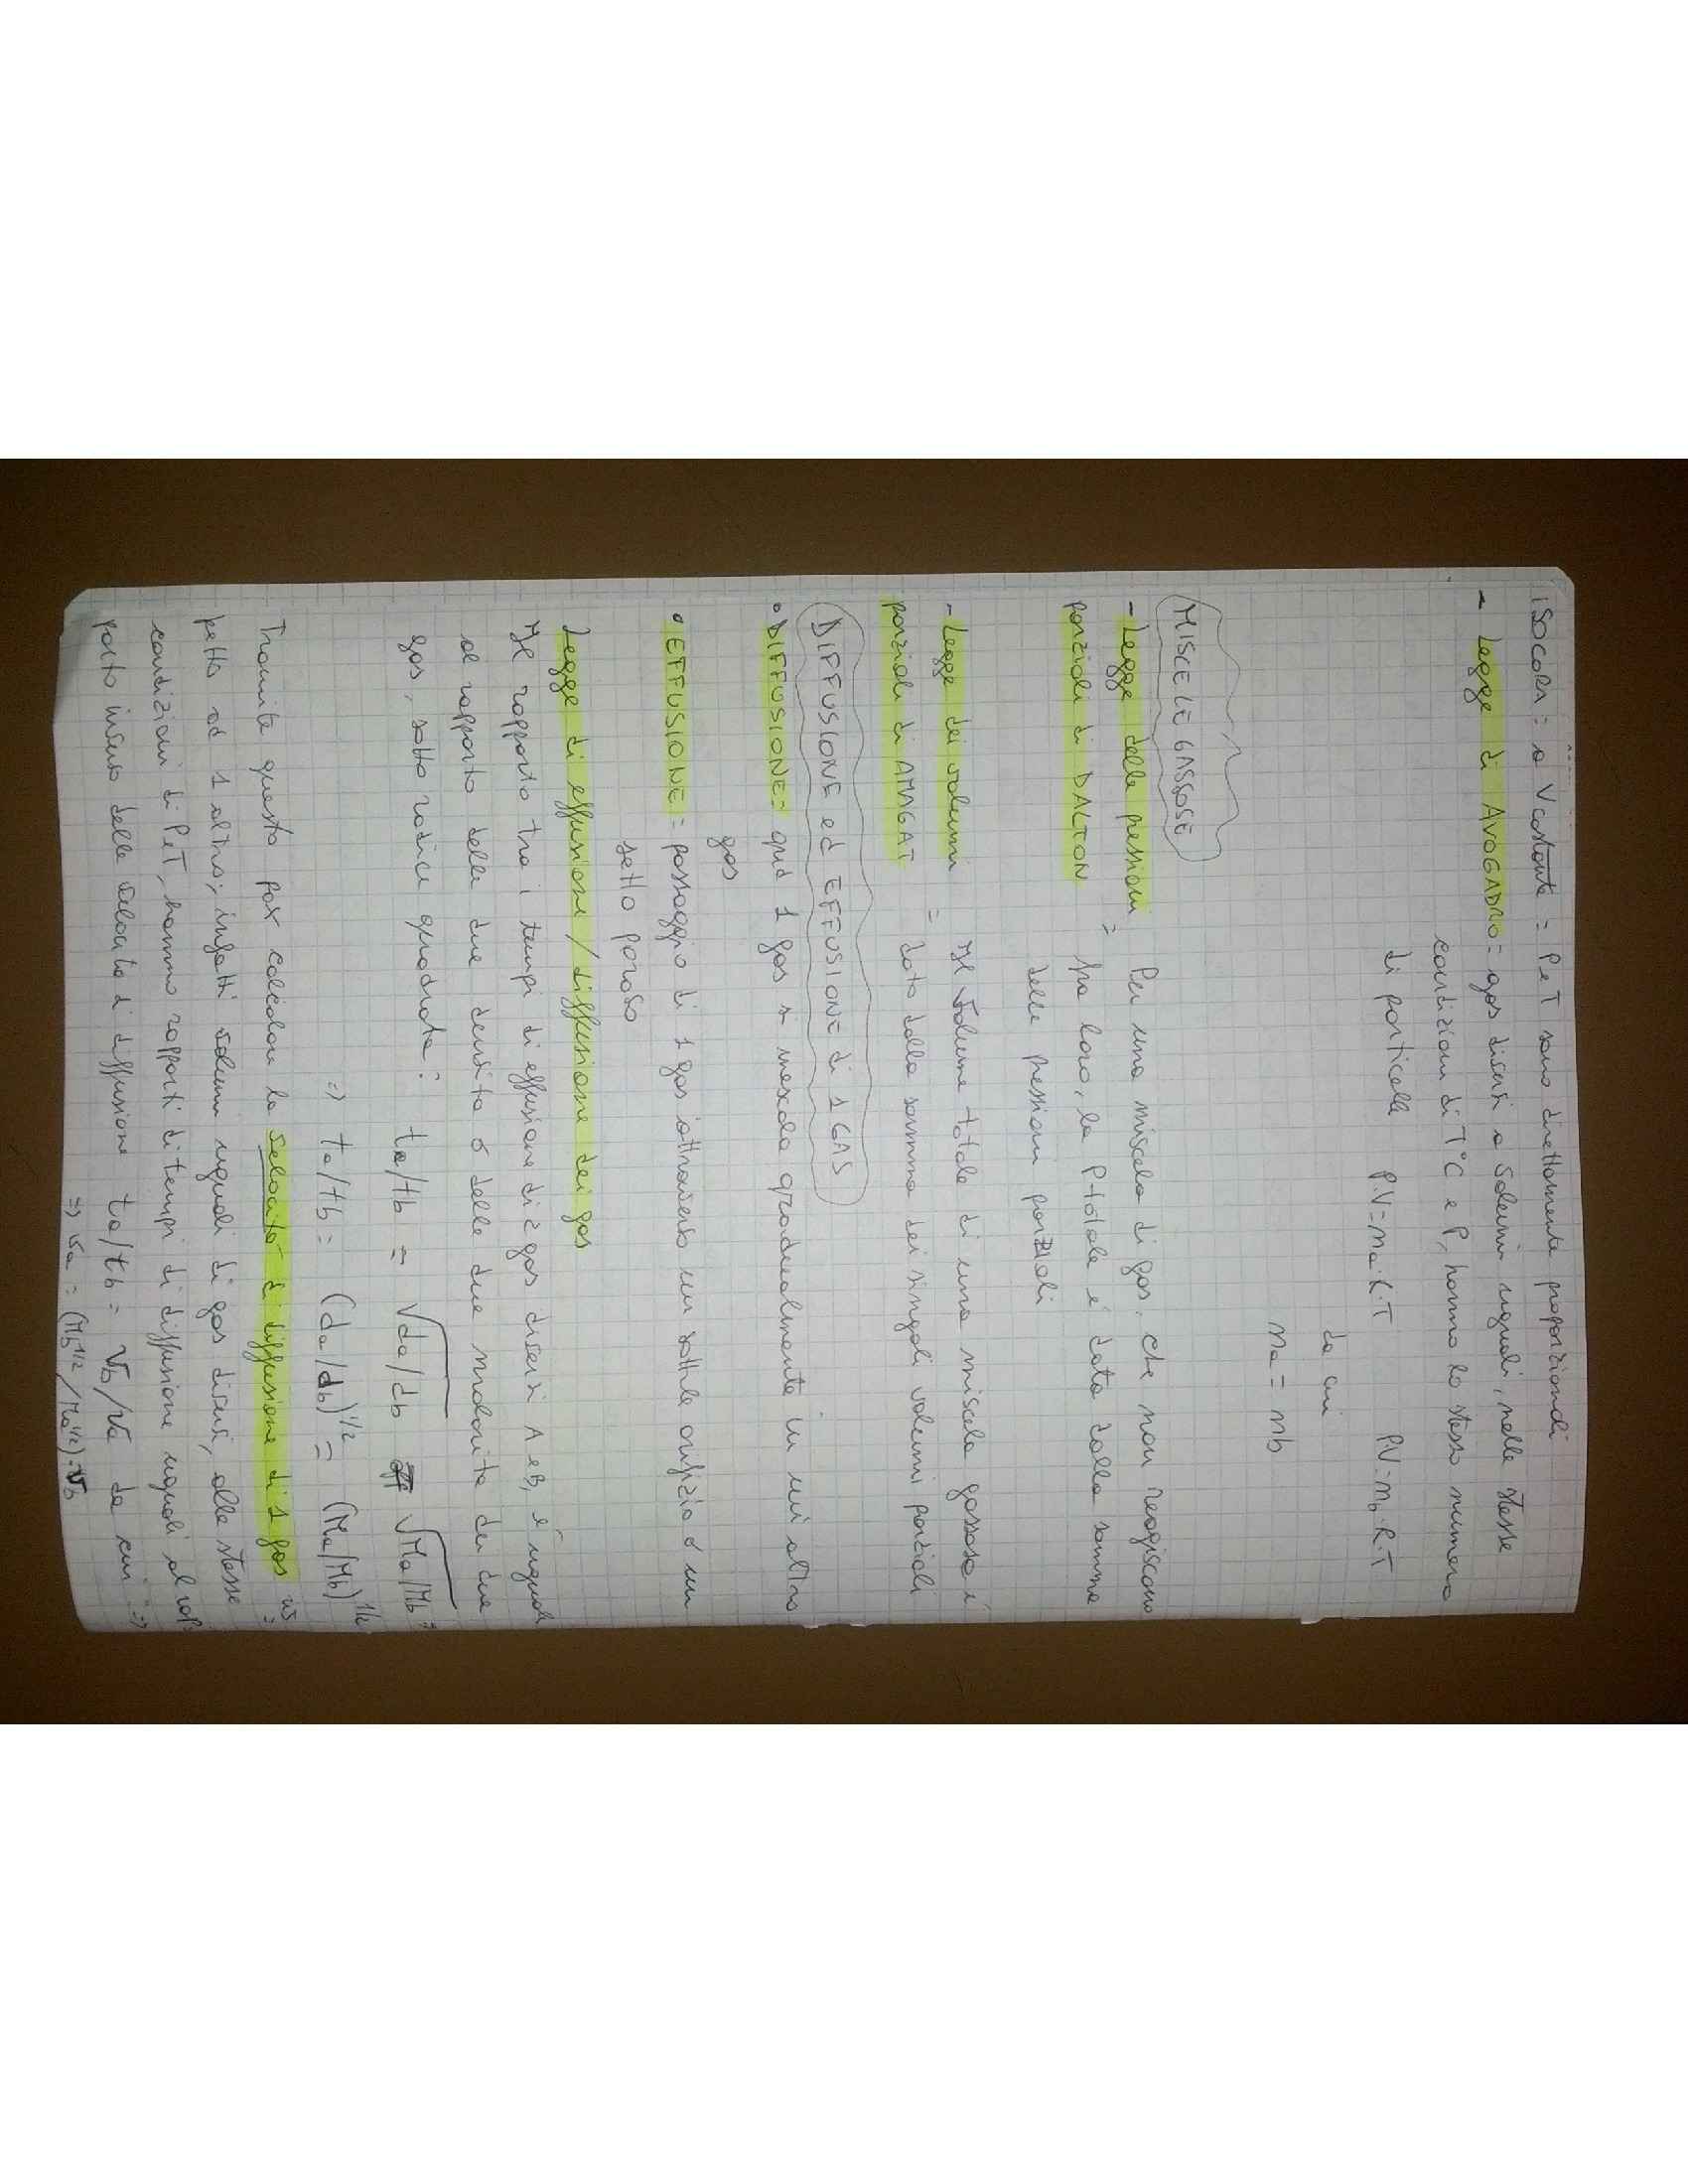 ISOCORA = a V costante = P e T sono direttamente proporzionali
- Legge di AVOGADRO = gas diversi a volumi uguali, nelle stesse
condizioni di T°C e P, hanno lo stesso numero
di particelle P.V = na.R.T PV = nb.R.T
da cui
na = nb
MISCELE GASSOSE
- Legge delle pressioni
parziali di DALTON = Per una miscela di gas, che non reagiscono
fra loro, la P totale è data dalla somma
delle pressioni parziali
- Legge dei volumi
parziali di AMAGAT = Il volume totale di una miscela gassosa è
dato dalla somma dei singoli volumi parziali
DIFFUSIONE ed EFFUSIONE di 1 GAS
• DIFFUSIONE = qnd 1 gas si mescola gradualmente in un altro
gas
• EFFUSIONE = passaggio di 1 gas attraverso un sottile orifizio o un
setto poroso
Legge di effusione / diffusione dei gas
Il rapporto tra i tempi di effusione di 2 gas diversi A e B, è uguale
al rapporto delle due densità o delle due molarità dei due
gas, sotto radice quadrata: ta/tb = √da/db √Ma/Mb =
=> ta/tb = (da/db)^1/2 = (Ma/Mb)^1/2
Tramite questo pox calcolare la velocità di diffusione di 1 gas
petto ad 1 altro; infatti volumi uguali di gas diversi, alle stesse
condizioni di P e T, hanno rapporti di tempi di diffusione uguali al rap-
porto inverso delle velocità di diffusione ta/tb = vb/va da cui =>
=> va = (Mb^1/2 / Ma^1/2).vb